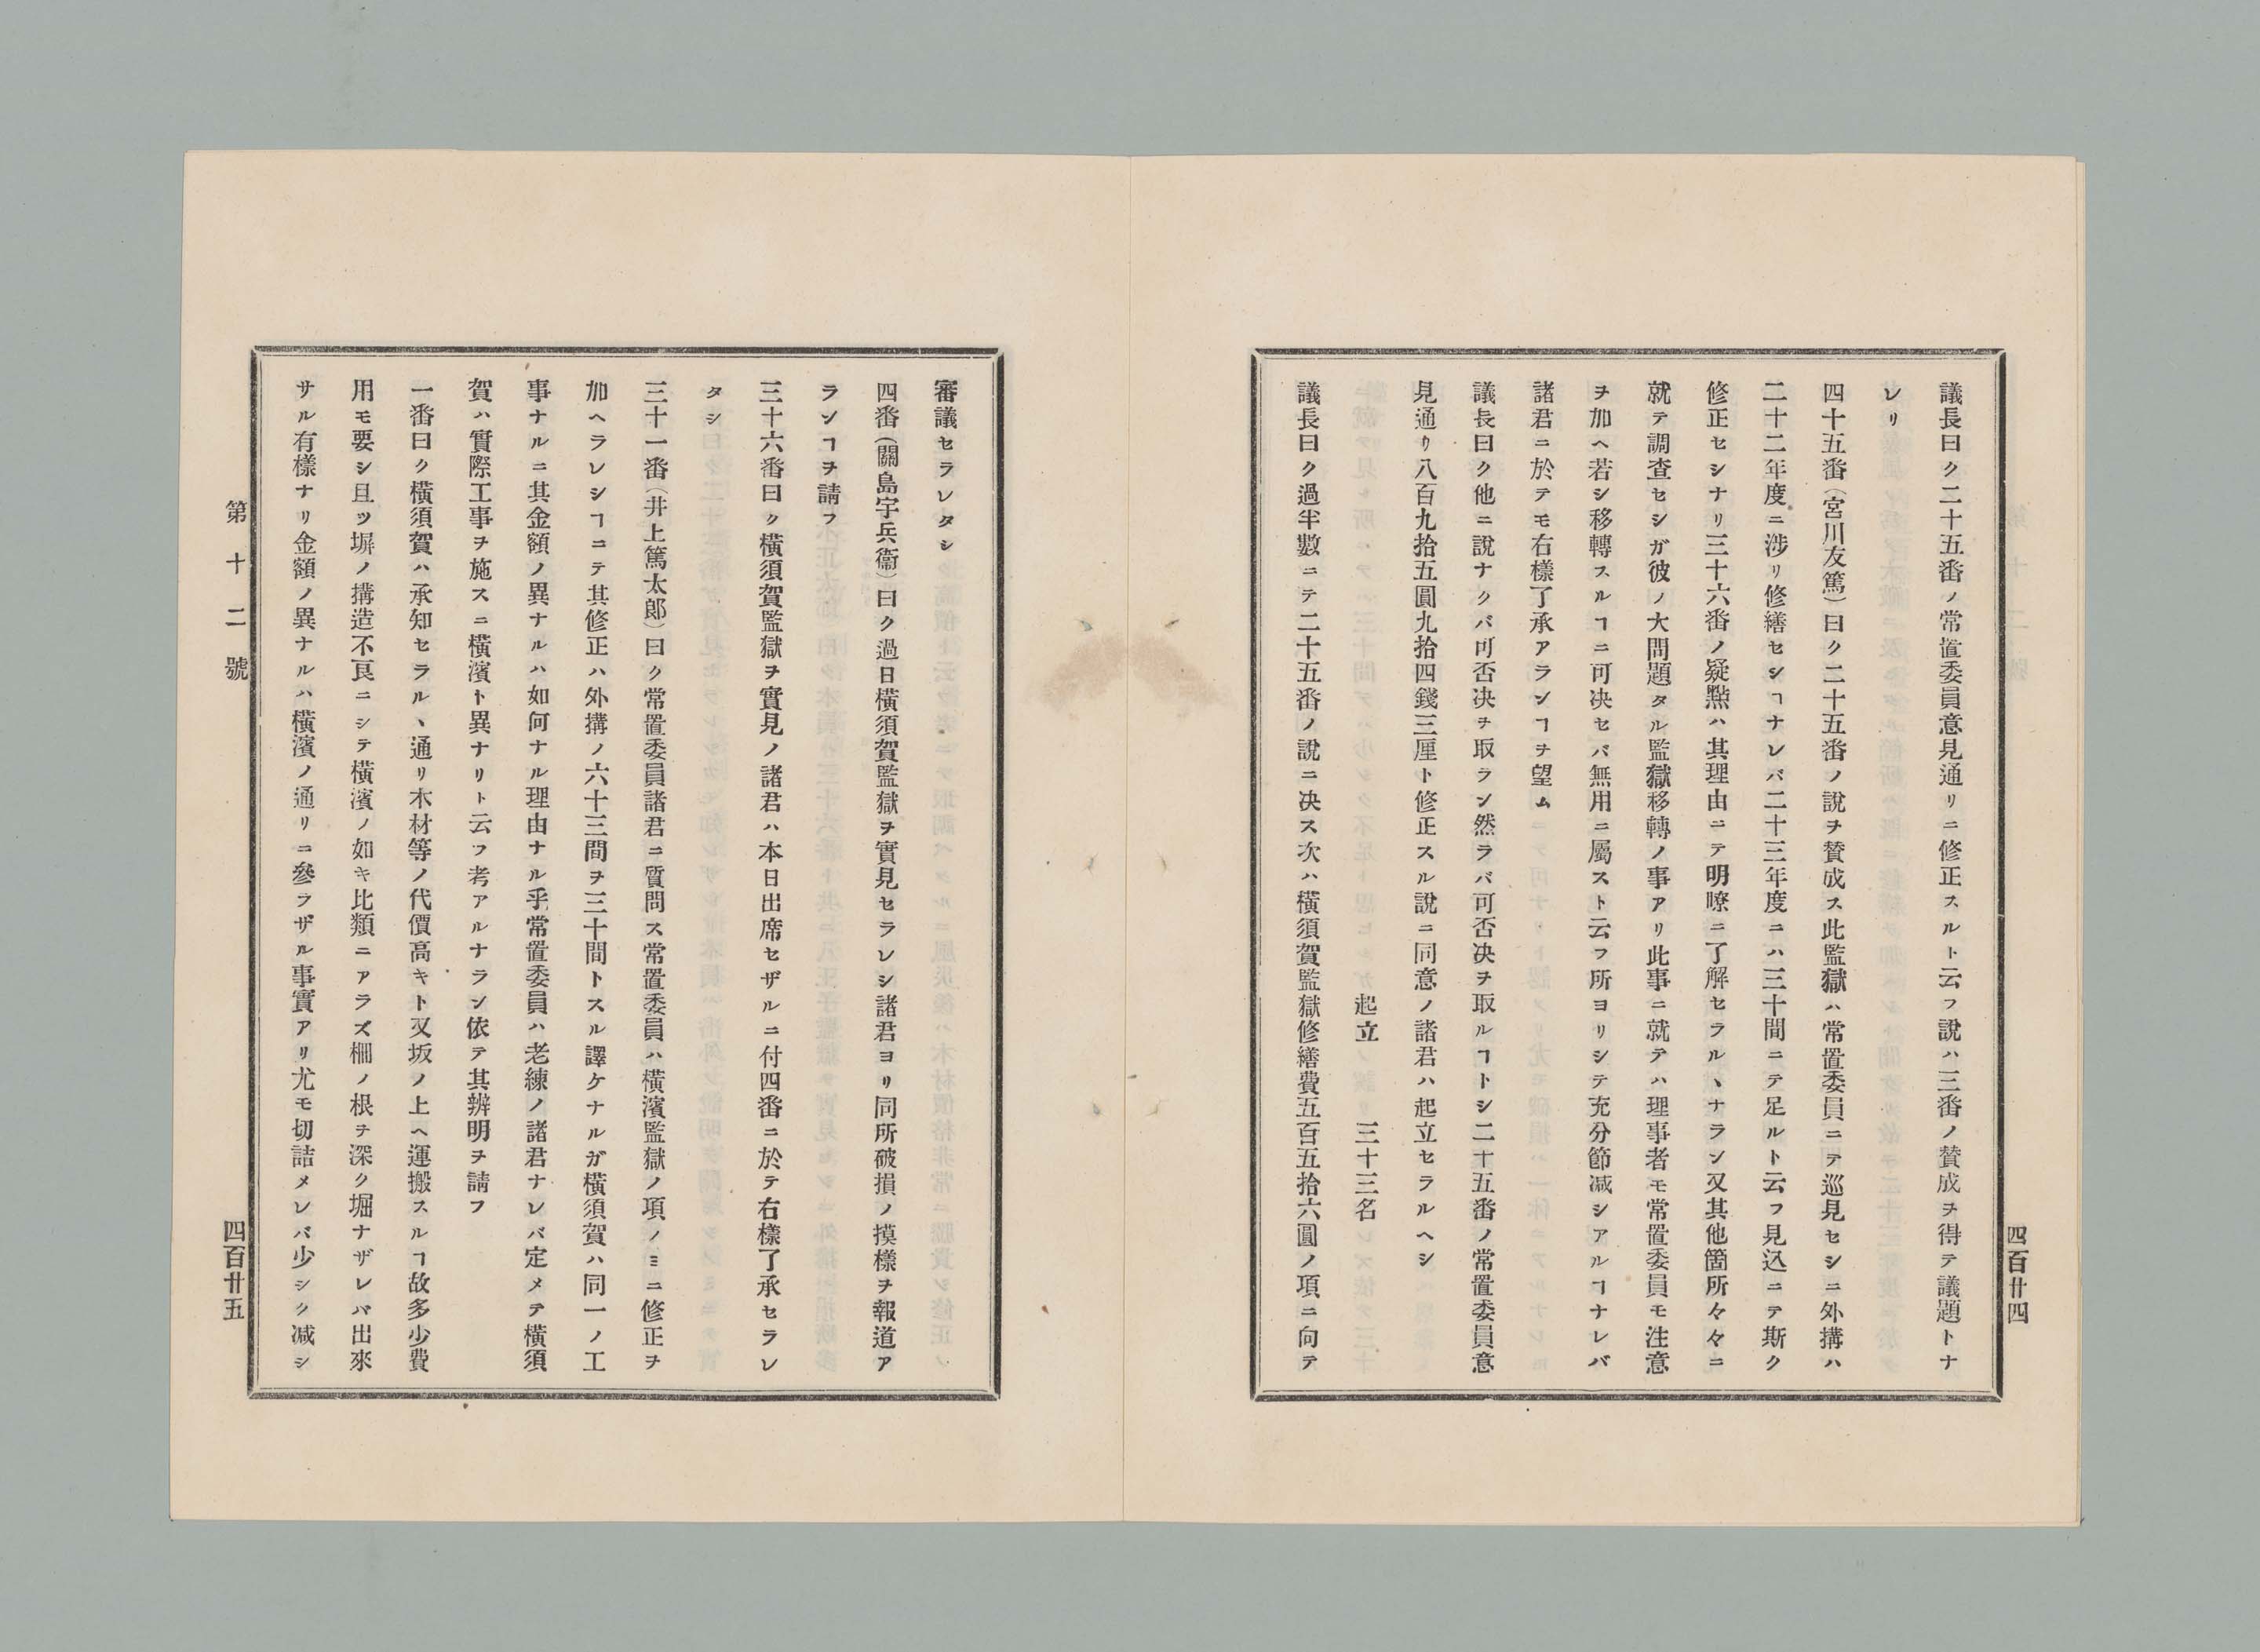 四百廿四
議長曰ク二十五番ノ常置委員意見通リニ修正スルト云フ說ハ三番ノ賛成ヲ得テ議題トナ
レリ
四十五番(宮川友篤)曰ク二十五番ノ說ヲ賛成ス此監獄ハ常置委員ニテ巡見セシニ外搆ハ
二十二年度ニ涉リ修繕セシヿナレバ二十三年度ニハ三十間ニテ足ルト云フ見込ニテ斯ク
修正セシナリ三十六番ノ疑㸃ハ其理由ニテ明瞭ニ了解セラルヽナラン又其他箇所々々ニ
就テ調査セシガ彼ノ大問題タル監獄移轉ノ事アリ此事ニ就テハ理事者モ常置委員モ注意
ヲ加ヘ若シ移轉スルヿニ可决セバ無用ニ屬スト云フ所ヨリシテ充分節减シアルヿナレバ
諸君ニ於テモ右樣了承アランヿヲ望ム
議長曰ク他ニ說ナクバ可否决ヲ取ラン然ラバ可否决ヲ取ルヿトシ二十五番ノ常置委員意
見通リ八百九拾五圓九拾四錢三厘ト修正スル說ニ同意ノ諸君ハ起立セラルヘシ
起立　三十三名
議長曰ク過半數ニテ二十五番ノ說ニ决ス次ハ橫須賀監獄修繕費五百五拾六圓ノ項ニ向テ
審議セラレタシ
四番(關島宇兵衞)曰ク過日橫須賀監獄ヲ實見セラレシ諸君ヨリ同所破損ノ摸樣ヲ報道ア
ランヿヲ請フ
三十六番曰ク橫須賀監獄ヲ實見ノ諸君ハ本日出席セザルニ付四番ニ於テ右樣了承セラレ
タシ
三十一番(井上篤太郞)曰ク常置委員諸君ニ質問ス常置委員ハ橫濱監獄ノ項ノミニ修正ヲ
加ヘラレシヿニテ其修正ハ外搆ノ六十三間ヲ三十間トスル譯ケナルガ橫須賀ハ同一ノ工
事ナルニ其金額ノ異ナルハ如何ナル理由ナル乎常置委員ハ老練ノ諸君ナレバ定メテ橫須
賀ハ實際工事ヲ施スニ橫濱ト異ナリト云フ考アルナラン依テ其辨明ヲ請フ
一番曰ク橫須賀ハ承知セラルヽ通リ木材等ノ代價高キト又坂ノ上ヘ運搬スルヿ故多少費
用モ要シ且ツ塀ノ搆造不良ニシテ橫濱ノ如キ比類ニアラズ柵ノ根ヲ深ク堀ナザレバ出來
サル有樣ナリ金額ノ異ナルハ橫濱ノ通リニ參ラザル事實アリ尤モ切詰メレバ少シク减シ
第十二號
四百廿五